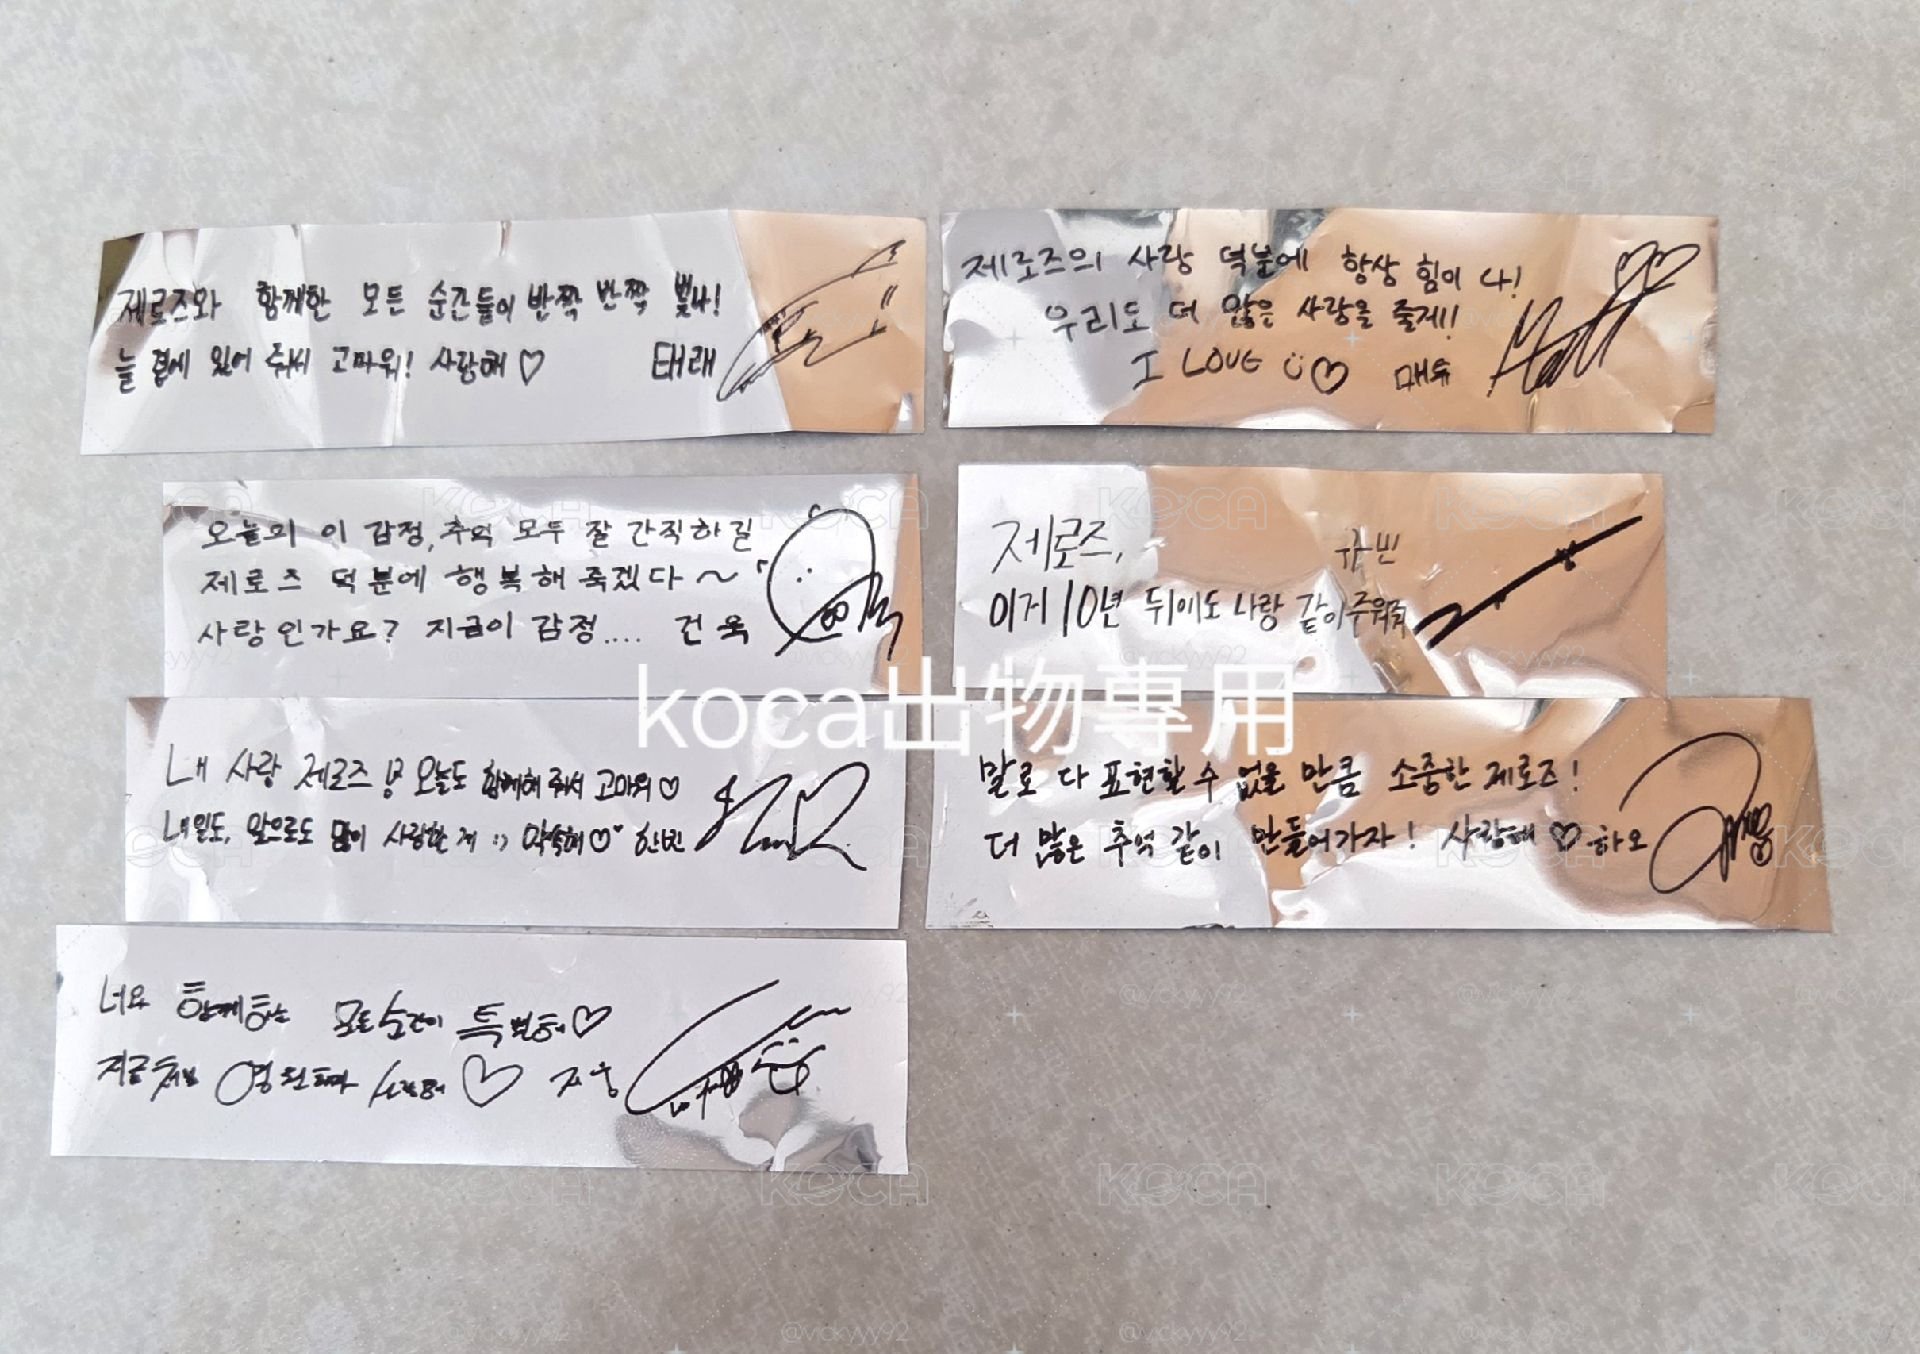 제로즈와 함께한 모든 순간들이 반짝 반짝 빛나!
늘 곁에 있어 줘서 고마워! 사랑해♡ 태래
제로즈의 사랑 덕분에 항상 힘이 나!
우리도 더 많은 사랑을 줄게!!
I LOVE ♡ 매튜
오늘의 이 감정, 추억 모두 잘 간직하길
제로즈 덕분에 행복해 죽겠다~
사랑인가요? 지금이 감정.... 건욱
제로즈,
규빈
이거 10년 뒤에도 나랑 같이
koca出物專用
내 사랑 제로즈 오늘도 함께해 줘서 고마워♡
내일도, 앞으로도 많이 사랑할게 :) 약속해♡ 한빈
말로 다 표현할 수 없을 만큼 소중한 제로즈!
더 많은 추억 같이 만들어가자! 사랑해♡ 하오
너와 함께하는 모든 순간이 특별해♡
지금처럼 영원히 사랑해♡ 지웅
KOCA
@vckyyy92